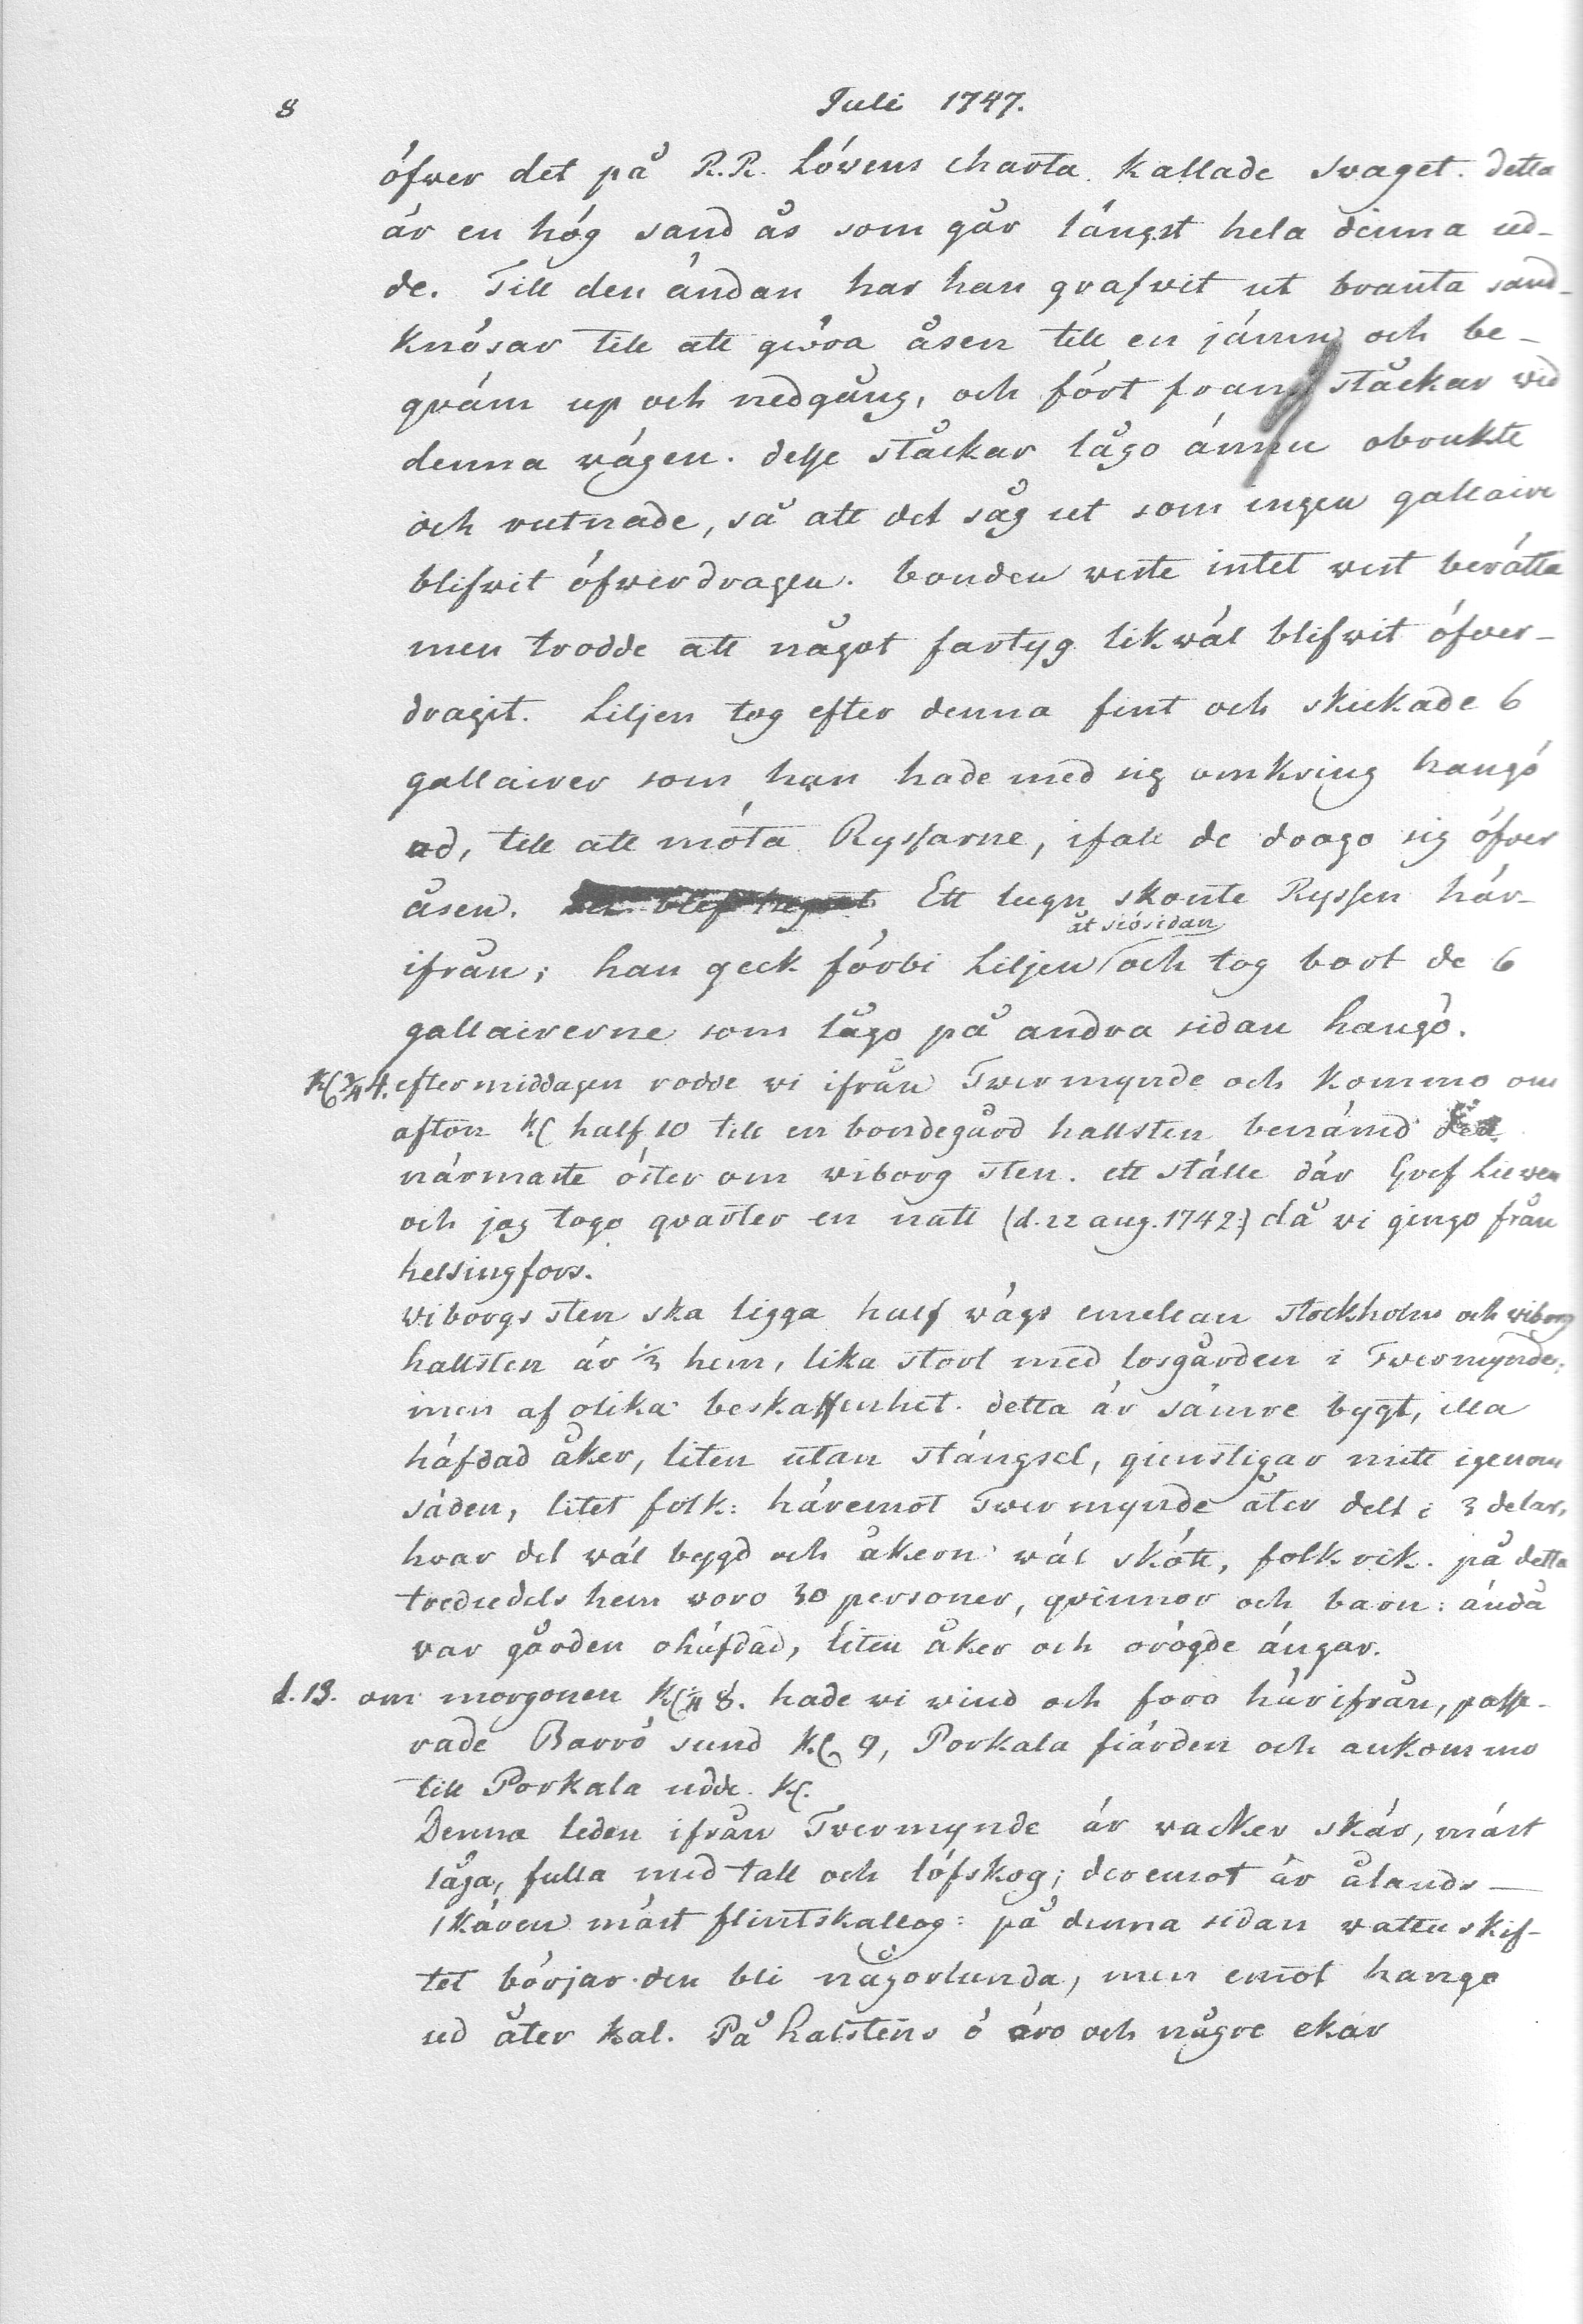 8 Juli 1747.
öfwer det på R.R. Löwens charta kallade Draget. detta
är en hög sand ås som går längst hela denna ud-
de. Till den ändan har han grafwit ut branta sand-
knösar till att giöra åsen till en jämn och be-
qväm up och nedgång, och fört fram ståckar wid
denna vägen. desse ståckar lågo ännu obrukte
och rutnade, så att det såg ut som ingen gallair
blifwit öfwerdragen. bonden wiste intet wist berätta
men trodde att något fartyg likwäl blifwit öfwer-
dragit. Liljen tog efter denna fint och skickade 6
gallairer som han hade med sig omkring hangö
ud, till att möta Ryssarne, ifall de drago sig öfwer
åsen. Ett lugn skonte Ryssen här-
åt siösidan
ifrån; han geck förbi Liljen och tog bort de 6
gallairerne som lågo på andra sidan hangö.
Kl 3/4 4. eftermiddagen rodde vi ifrån Twermynde och kommo om
afton kl half 10 till en bondegård hallsten benämd
närmaste öster om wiborg sten. ett ställe där Gref Liewen
och jag togo qvarter en natt (d. 22 aug. 1742:) då vi gingo från
helsingfors.
Wiborgs sten ska ligga half wägs emellan stockholm och wiborg
hallsten är 1/3 hem, lika stort med losgården i Twermynde,
men af olika beskaffenhet. detta är sämre bygt, illa
häfdad åker, liten utan stängsel, gienstigar mitt igenom
säden, litet folk: häremot Twermynde åter delt i 3 delar,
hvar del wäl bygd och åkern wäl skött, folkrik. på detta
trediedels hem voro 30 personer, qvinnor och barn: ändå
var gården ohäfdad, liten åker och orögde ängar.
d. 13. om morgonen kl 1/4 8. hade wi wind och foro härifrån, passe-
rade Barrö sund kl 9, Porkala fiärden och ankommo
till Porkala udde kl.
Denna leden ifrån Twermynde är wacker skär, mäst
låga, fulla med tall och löfskog; deremot är ålands-
skären mäst flintskallog: på denna sidan wattuskif-
tet börjar den bli någorlunda, men emot hangö
ud åter kal. På halstens ö äro och någre ekar